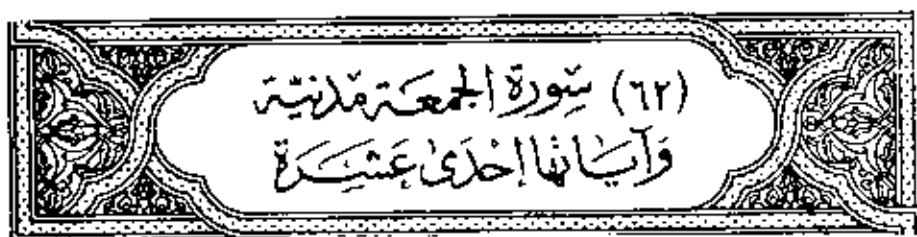 (٦٢) سُورَةُ الجُمعَة مَدَنيَّة
وَآيَاتهَا إحْدَىٰ عَشَرَة